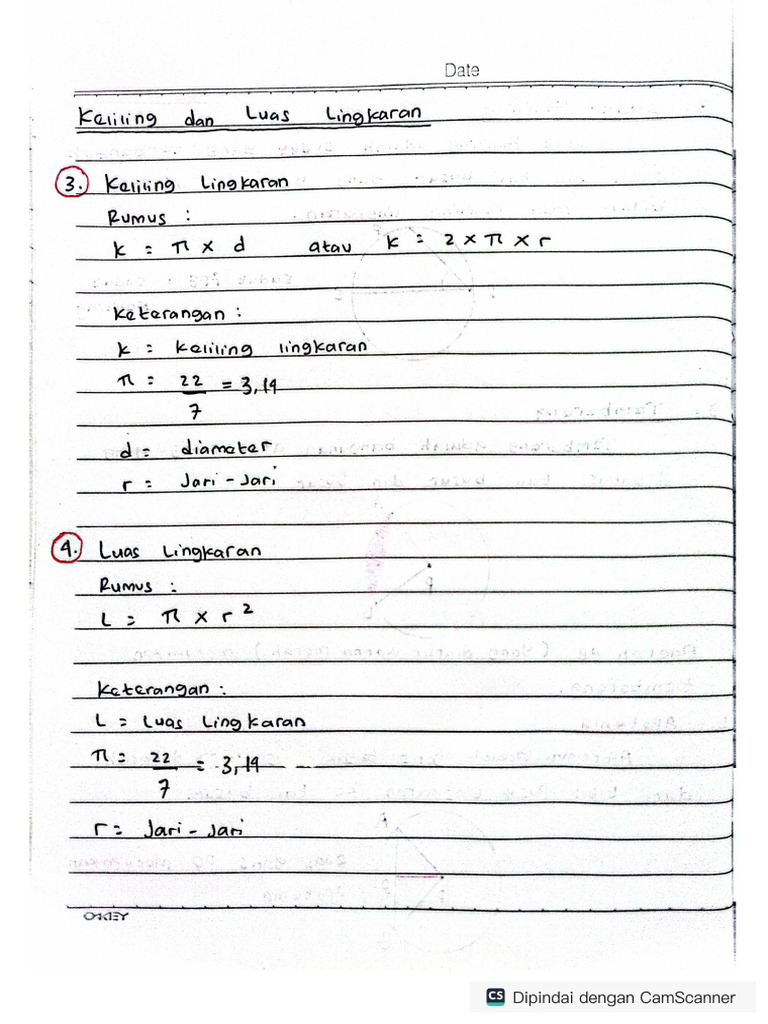 Date
Keliling dan Luas Lingkaran
3. Keliling Lingkaran
Rumus :
K = π x d atau K = 2 x π x r
Keterangan :
K = Keliling lingkaran
π = 22/7 = 3,14
d = diameter
r = Jari - Jari
4. Luas Lingkaran
Rumus :
L = π x r²
Keterangan :
L = Luas Lingkaran
π = 22/7 = 3,14 - -
r = Jari - Jari
OKEY
CS Dipindai dengan CamScanner